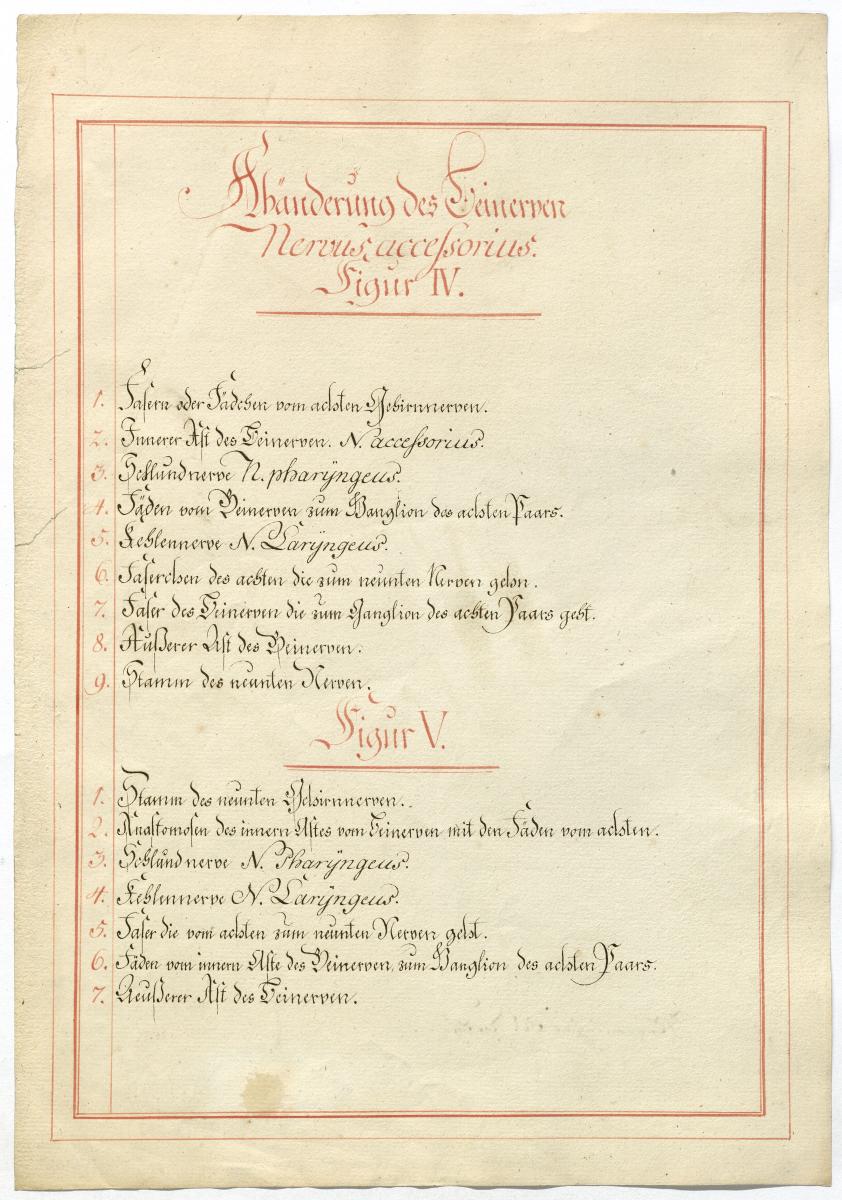 Abänderung des Beinerven
Nervus accessorius.
Figur IV.
1. Fasern oder Fädchen vom achten Gehirnnerven.
2. Innerer Ast des Beinerven. N. accessorius.
3. Schlundnerve N. pharÿngeus.
4. Fäden vom Beinerven zum Ganglion des achten Paars.
5. Kehlennerve N. Larÿngeus.
6. Faserchen des achten die zum neunten Nerven gehn.
7. Faser des Beinerven die zum Ganglion des achten Paars geht.
8. Äußerer Ast des Beinerven.
9. Stamm des neunten Nerven.
Figur V.
1. Stamm des neunten Gehirnnerven.
2. Anastomosen des innern Astes vom Beinerven mit den Fäden vom achten.
3. Schlundnerve N. Pharÿngeus.
4. Kehlennerve N. Larÿngeus.
5. Faser die vom achten zum neunten Nerven geht.
6. Fäden vom innern Aste des Beinerven, zum Ganglion des achten Paars.
7. Aeußerer Ast des Beinerven.